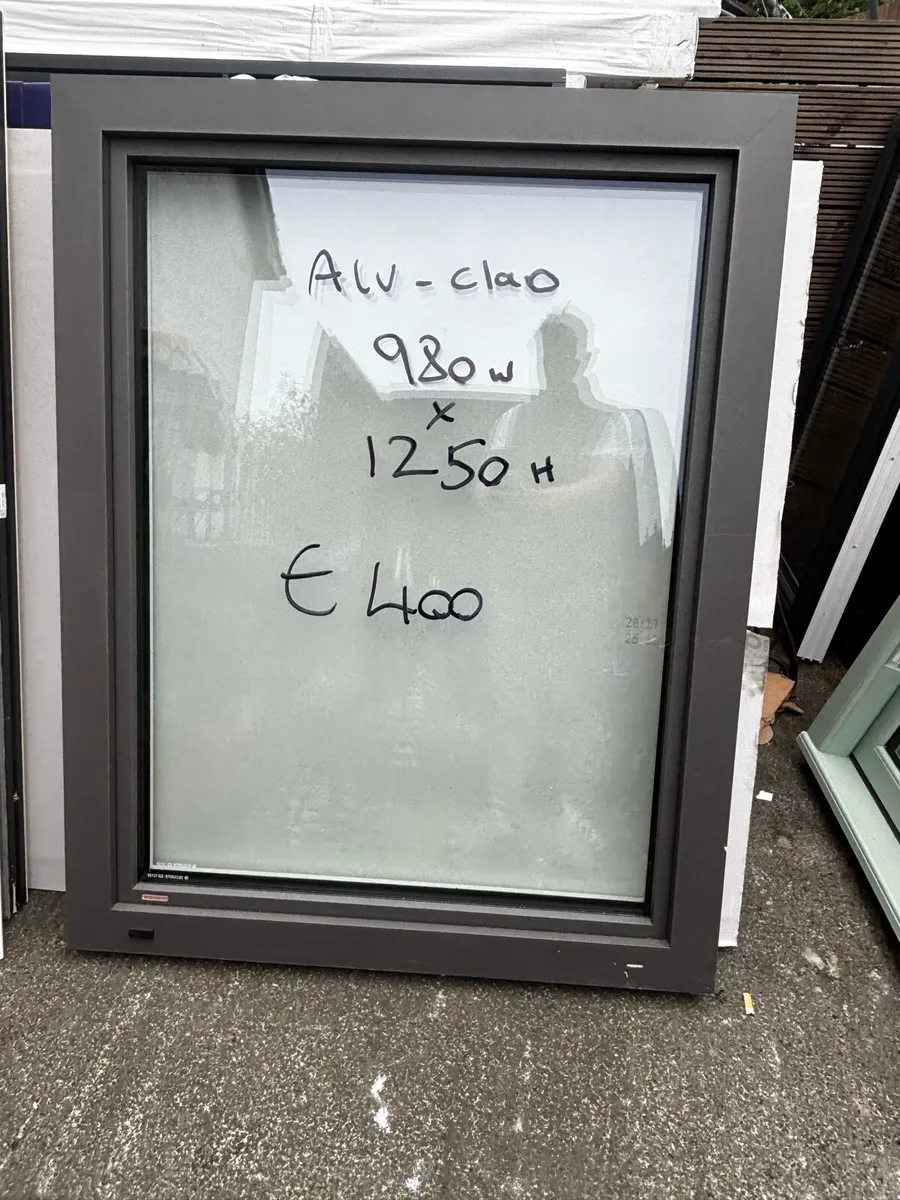 Alu-clad
980 W
x
1250 H
€400
20:27